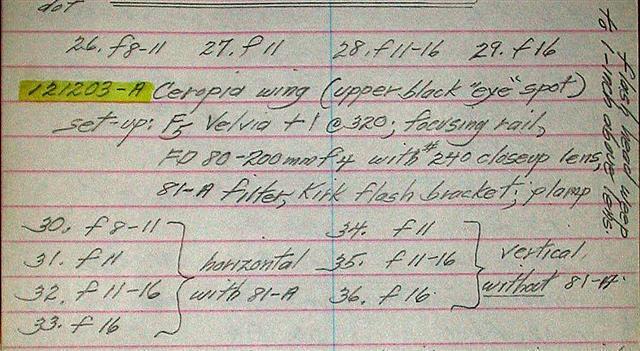 dot
26. f8-11 27. f11 28. f11-16 29. f16
121203-A Ceropia wing (upper black "eye" spot)
set-up: F5 Velvia +1 @320; focusing rail,
FD 80-200mm f4 with #240 closeup lens,
81-A filter, Kirk flash bracket; plamp
30. f8-11 34. f11
31. f11 horizontal 35. f11-16 vertical,
32. f11-16 with 81-A 36. f16 without 81-A.
33. f16
flash head
to 1-inch above lens.